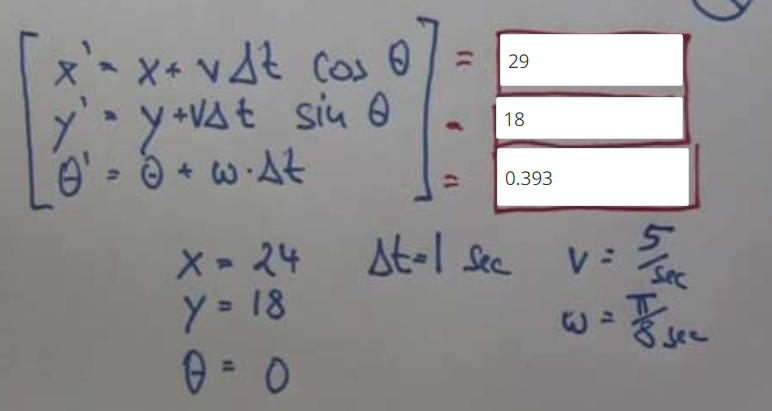 x' = x + v Δt cos θ = 29
y' = y + VΔt sin θ = 18
θ' = θ + ω · Δt = 0.393
x = 24 Δt = 1 sec v = 5/sec
y = 18 ω = π/8 sec
θ = 0